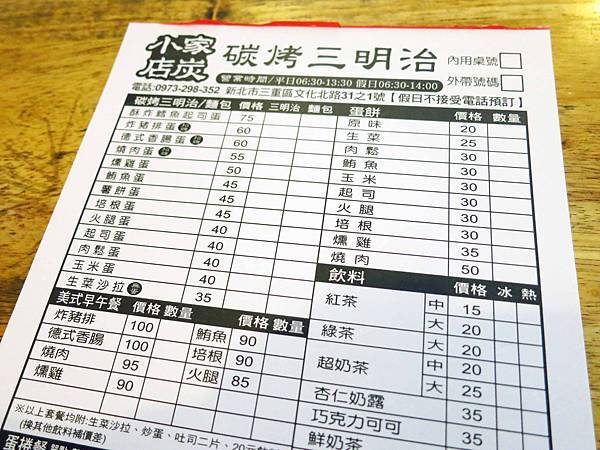 小家店炭
碳烤三明治
內用桌號
外帶號碼
營業時間/平日06:30-13:30 假日06:30-14:00
電話:0973-298-352 新北市三重區文化北路31之1號【假日不接受電話預訂】
碳烤三明治/麵包 價格 三明治 麵包
酥炸鱈魚起司蛋 75
炸豬排蛋 60
德式香腸蛋 60
燒肉蛋 55
燻雞蛋 50
鮪魚蛋 45
薯餅蛋 45
培根蛋 45
火腿蛋 40
起司蛋 40
肉鬆蛋 40
玉米蛋 40
生菜沙拉 35
蛋餅 價格 數量
原味 20
生菜 25
肉鬆 30
鮪魚 30
玉米 30
起司 30
火腿 30
培根 30
燻雞 35
燒肉 50
美式早午餐 價格 數量 價格 數量
炸豬排 100 鮪魚 90
德式香腸 100 培根 90
燒肉 95 火腿 85
燻雞 90
※以上套餐均附:生菜沙拉、炒蛋、吐司二片、20元飲
(換其他飲料補價差)
飲料 價格 冰 熱
紅茶 中 15
大 20
綠茶 大 20
超奶茶 中 20
大 25
杏仁奶露 35
巧克力可可 35
鮮奶茶 35
蛋捲餐